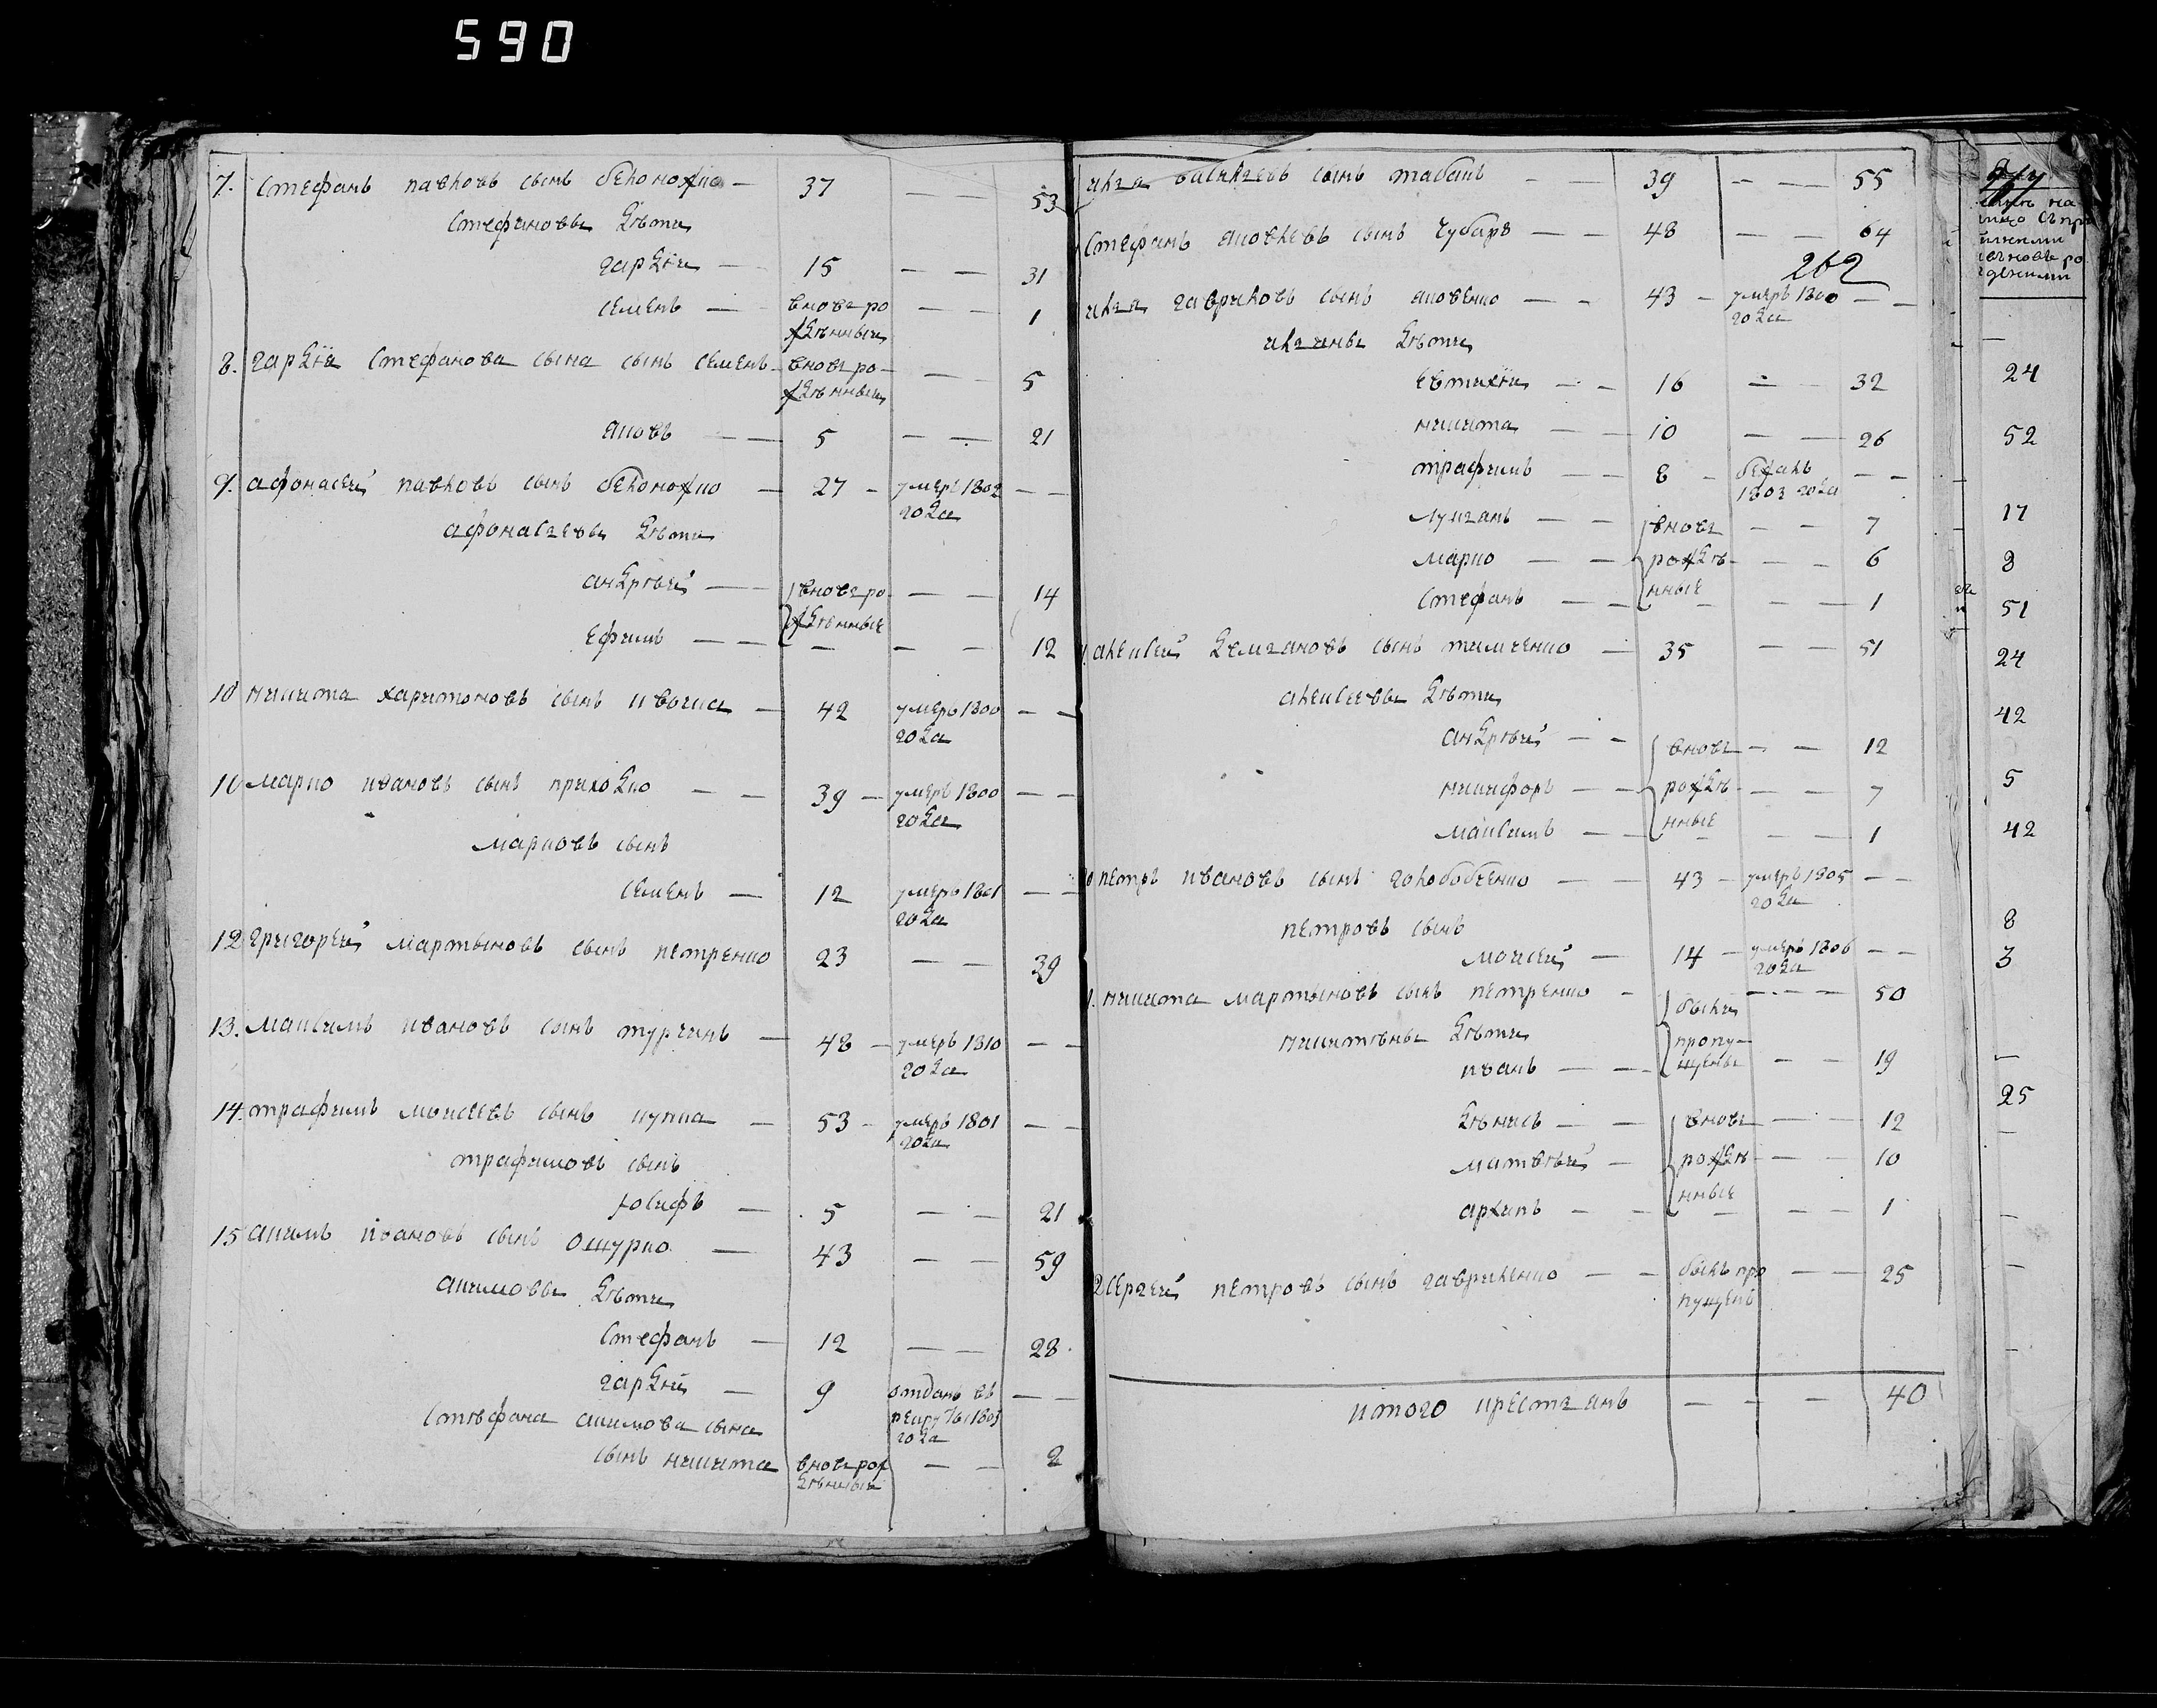 590
7. Стефанъ павловъ сынъ белоножко — 37 — — 53
Стефановы дѣти
гардѣй — 15 — — 31
семенъ — вновь ро — — 1
жденный
8. гардѣя Стефанова сына сынъ семенъ — вновь ро — — 5
жденный
яковъ — — 5 — — 21
9. афонасей павловъ сынъ белоножко — 27 — умеръ 1802 — —
года
афонасьевы дѣти
андрѣй — вновь ро — — 14
жденные
ефимъ — — — — — 12
10 никита харитоновъ сынъ — 42 умеръ 1800 — —
года
11 марко ивановъ сынъ приходко — — 39 — умеръ 1800 — —
года
марковъ сынъ
семенъ — 12 умеръ 1801 — —
года
12 григорей мартыновъ сынъ петренко 23 — — 39
13. максимъ ивановъ сынъ турчинъ — 48 — умеръ 1810 — —
года
14. трафимъ моисеевъ сынъ купка — 53 — умеръ 1801 — —
года
трафимовъ сынъ
іосифъ — 5 — — 21
15 акимъ ивановъ сынъ ощурко — 43 — — 59
акимовы дѣти
Стефанъ — 12 — — 28
гардѣй — 9 отданъ въ — —
рекруты 1803
года
Стефана акимова сына
сынъ никита вновь рож — — 2
денный
илья васильевъ сынъ табанъ — — 39 — — 55
Стефанъ яковлевъ сынъ чубаръ — — 48 — — 64
262
илья гавриловъ сынъ яковенко — — 43 — умеръ 1800 — —
года
ильины дѣти
евтихій — — 16 — — 32
никита — — 10 — — 26
трафимъ — — 8 — бежалъ — —
1803 года
лукianъ — — вновь — — 7
марко — — рожде — — 6
Стефанъ — — нные — — 1
алексей демяновъ сынъ тимченко — 35 — — 51
алексеевы дѣти
андрѣй — — вновь — — 12
никифоръ — — рожде — — 7
максимъ — — нные — — 1
0 петръ ивановъ сынъ голобобченко — — 43 — умеръ 1805 — —
года
петровъ сынъ
моисей — 14 — умеръ 1806 — —
года
1. никита мартыновъ сынъ петренко — были — — — 50
никитины дѣти пропу-
иванъ — — щены — — 19
денисъ — — вновь — — 12
матвѣй — рожде — — 10
архипъ — — нные — — 1
2 сергей петровъ сынъ гавриленко — — былъ про — — 25
пущенъ
итого крестьянъ — — — 40
24
52
17
8
51
24
42
5
42
8
3
25